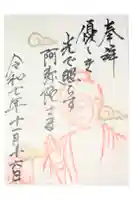 奉拝
優しき
光で照らす
阿弥陀さま
令和七年十一月十六日